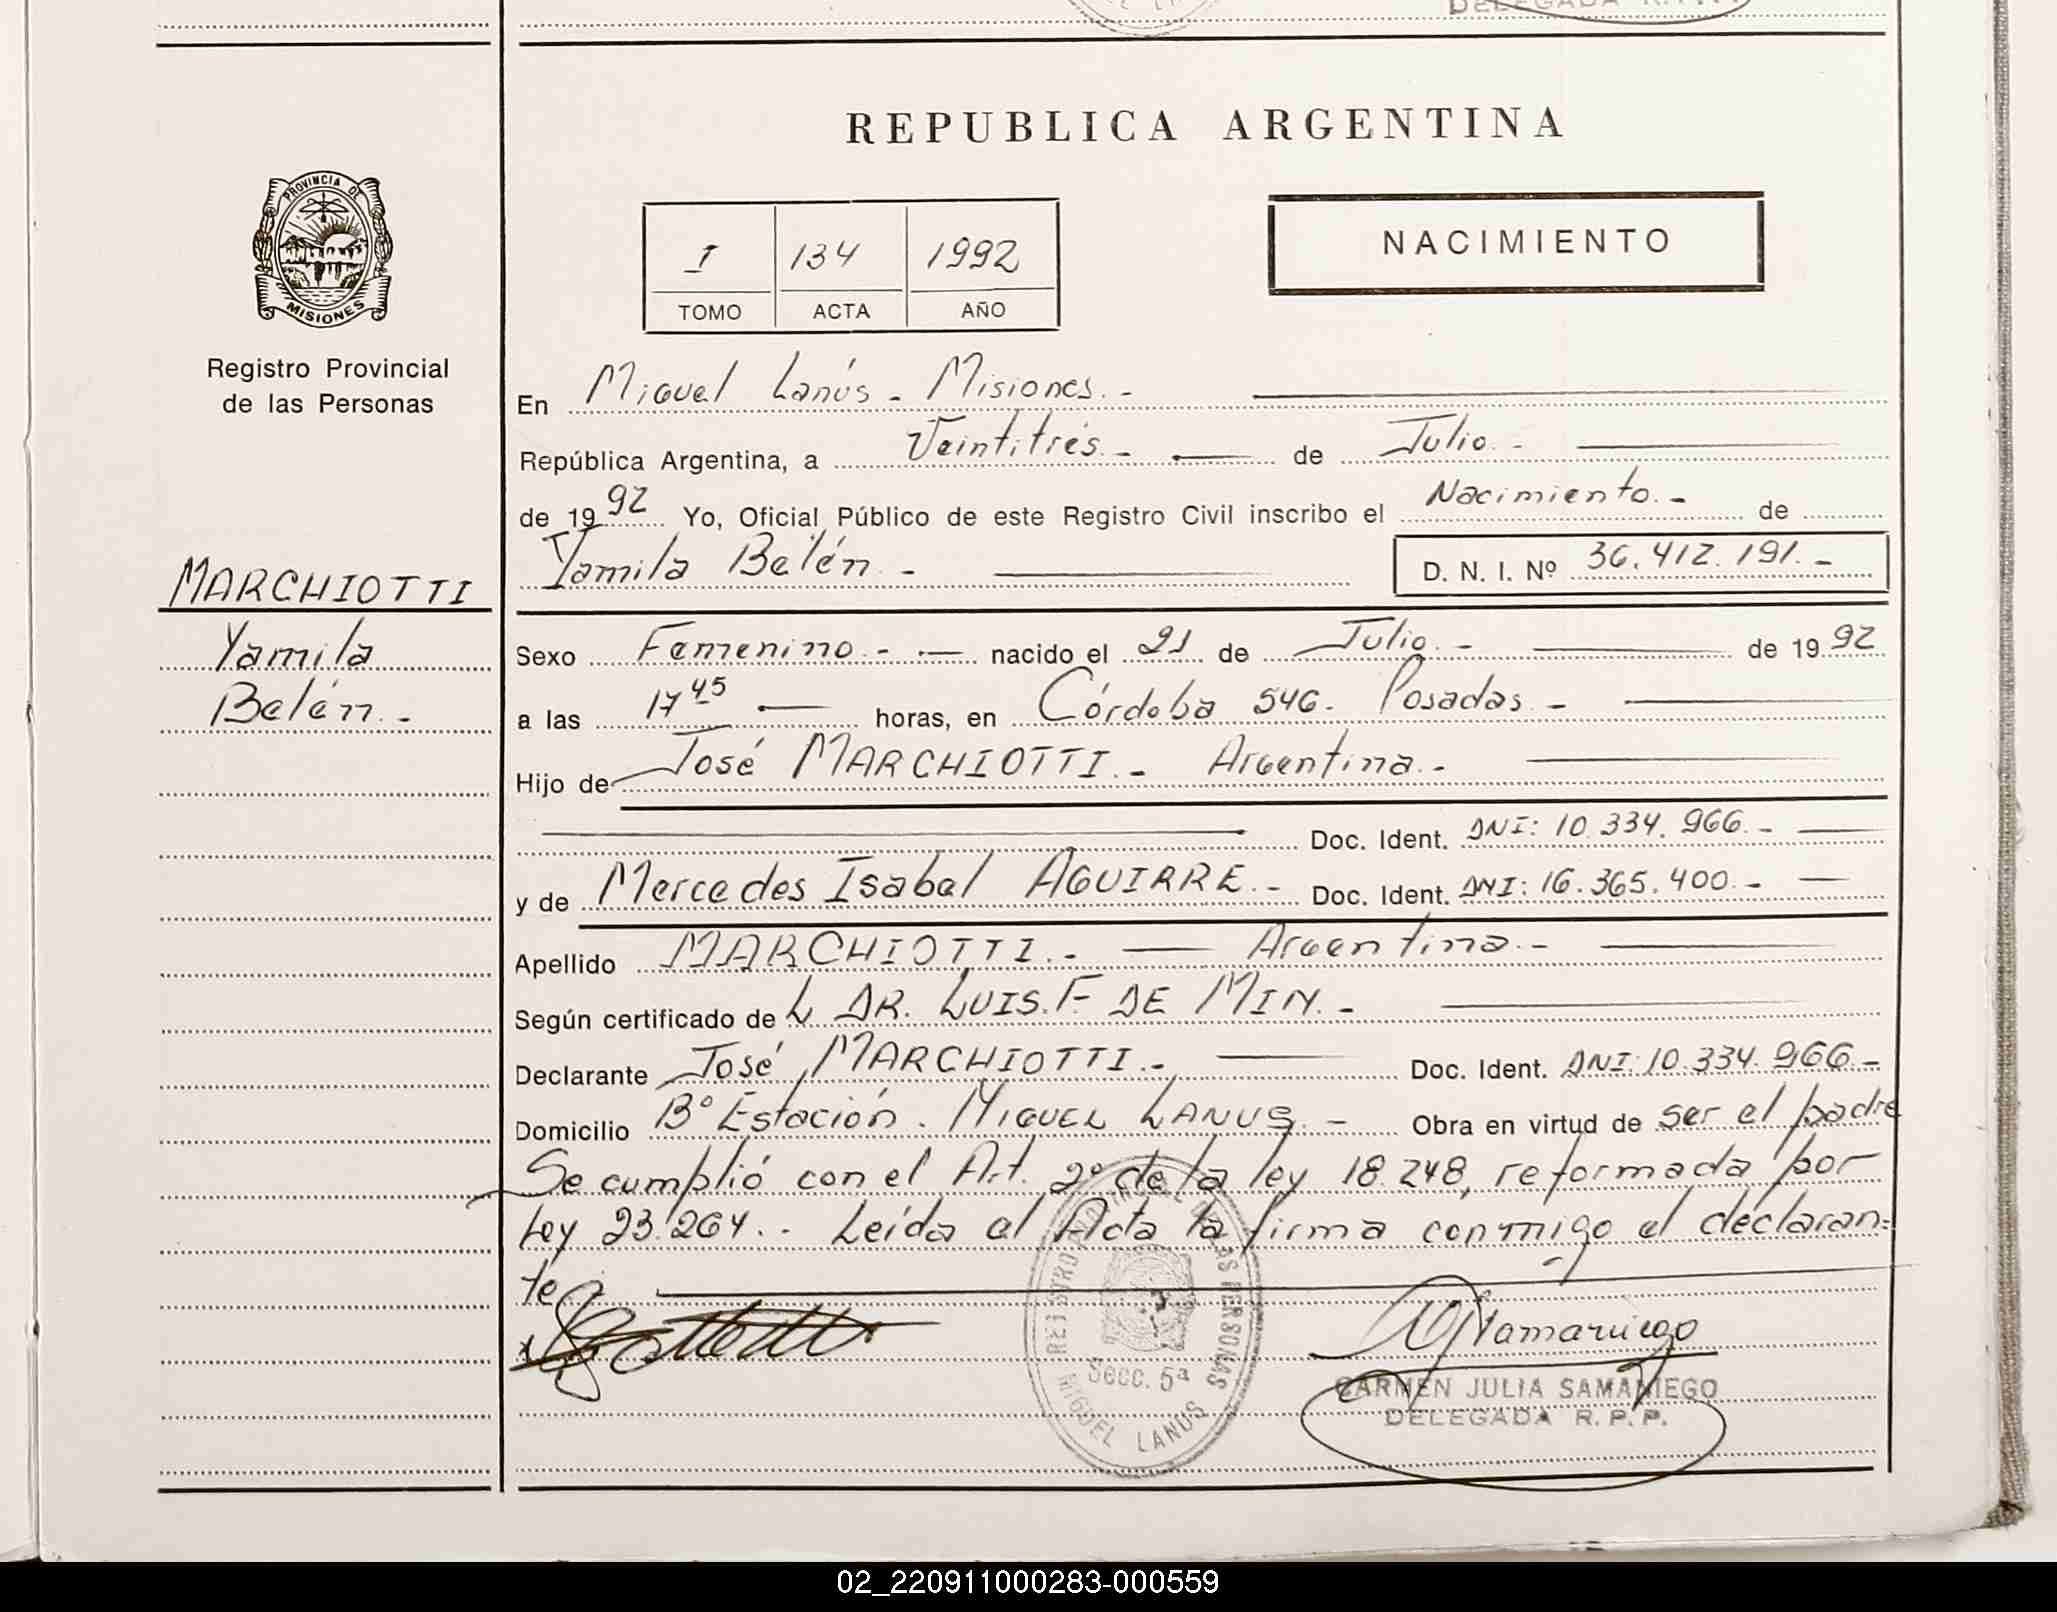 DELEGADA R.P.P.
REPUBLICA ARGENTINA
PROVINCIA DE
MISIONES
Registro Provincial
de las Personas
I 134 1992
TOMO ACTA AÑO
NACIMIENTO
En Miguel Lanús - Misiones.-
República Argentina, a Veintitrés.- de Julio.-
de 1992 Yo, Oficial Público de este Registro Civil inscribo el Nacimiento.- de
Yamila Belén.- D. N. I. Nº 36.412.191.-
MARCHIOTTI
Yamila
Belén.-
Sexo Femenino.- nacido el 21 de Julio.- de 1992
a las 17 45 horas, en Córdoba 546. Posadas.-
Hijo de José MARCHIOTTI.- Argentina.-
Doc. Ident. DNI: 10.334.966.-
y de Mercedes Isabel AGUIRRE.- Doc. Ident. DNI: 16.365.400.-
Apellido MARCHIOTTI.- Argentina.-
Según certificado de L DR. LUIS.F. DE MIN.-
Declarante José MARCHIOTTI.- Doc. Ident. DNI: 10.334.966.-
Domicilio Bº Estación. MIGUEL LANUS.- Obra en virtud de ser el padre
Se cumplió con el Art. 2º de la ley 18.248, reformada por
Ley 23.264.- Leída el Acta la firma conmigo el declaran=
te
Samaniego
REGISTRO PROVINCIAL DE LAS PERSONAS
Secc. 5ª
MIGUEL LANUS
CARMEN JULIA SAMANIEGO
DELEGADA R.P.P.
02_220911000283-000559